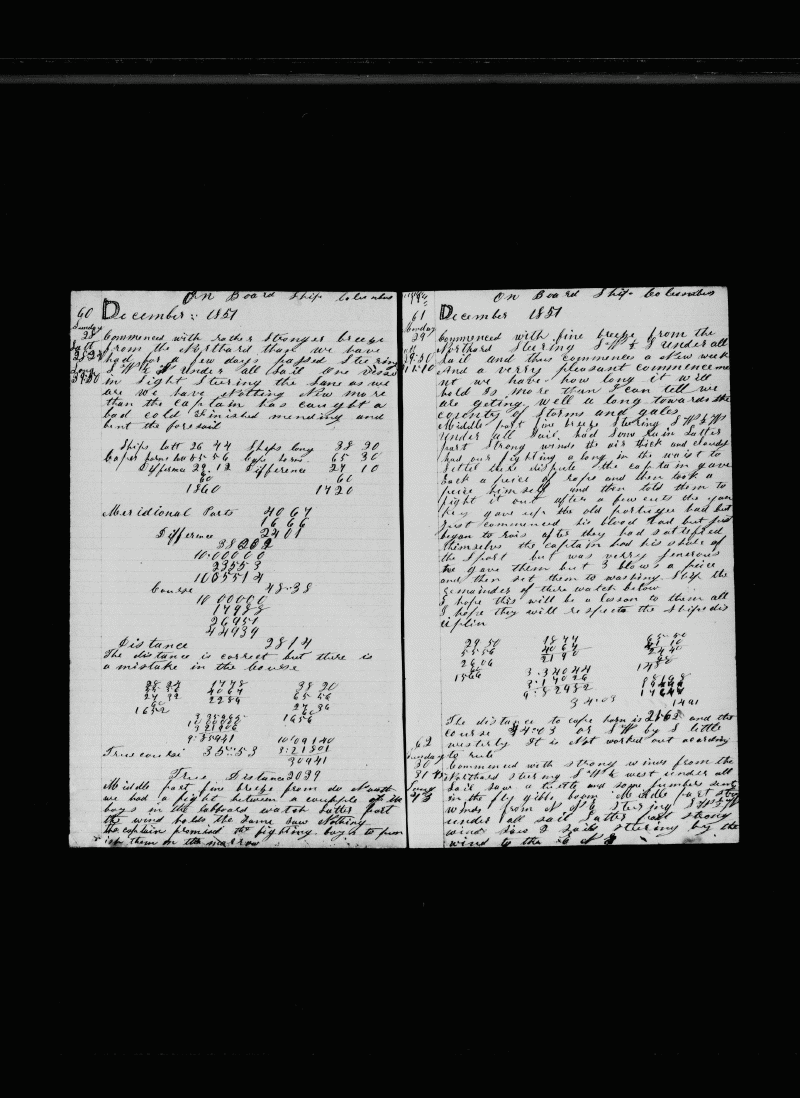 On Board Ship Columbus
60 December 1851
Sunday
28 Commenced with rather stronger breeze
Latt from the Northard than we have
28 24 had for a few days passed Steering
Long S W & W under all Sail One vessel
38 20 in Sight Steering the Same as we
are We have Nothing New more
than the Captain has caught a
bad cold Finished mending and
bent the foresail
Ships latt 26 44 Ships long 38 20
horns latt 55 56 Cape horns 65 30
Difference 29 12 Difference 27 10
60 60
1860 1420
Meridional Parts 4067
1666
Difference 2401
10.00000
23553
1005514
Course 48.38
10 00000
17988
26951
44939
Distance 2814
The distance is correct but there is
a mistake in the Course
28 24 1778 38 20
55 56 4067 65 56
27 32 2289 27 36
60 60
1652 1656
9.85941 10.09140
True course 35°.53 3.21801
30941
True Distance 2039
Middle part fine breeze from do North
we had a fight between a couple of the
boys in the labboard watch Latter part
the wind holds the Same Saw Nothing
the captain promised the fighting boys to pun
ish them on the morrow
On Board Ship Columbus
61 December 1851
Monday
29 Commenced with fine breeze from the
Northard Steering S W & S under all
Sail and thus commences a New week
And a verry pleasant commenceme
nt we have how long it will
hold Is more than I can tell we
are geting well a long towards the
country of Storms and gales
Middle part fine breeze Steering
under all Sail had Some rain Latter
part Strong winds the air thick and cloudy
had our fighting a long in the waist to
Settel there dispute the captain gave
Each a peice of rope and then took a
peice himself and then told them to
fight it out after a few cuts the yan
key gave up the old portugee had but
Just commenced his blood had but just
began to rais after they had satesfied
themselves the captain had his share of
the Sport but was verry generous
he gave them but 3 blows a peice
and then set them to washing Ship the
remainder of there watch below
I hope this will be a lesson to them all
I hope they will respecte the Ships dis
ciplin
29 50 1844
55 56 4067
26 06
60
1566 3.34044
9.52982
34.03 1491
The distance to cape horn is and the
course 34.03 or S W by S little
62 westerly It is Not worked out acording
Tuesday to rule
30 Commenced with strong winds from the
Northard Steering S W & west under all
Sail Saw a turtle and some jumpers sent
in the fly gibb boom Middle part strong
winds from N N E Steering
under all sail Latter part strong
wind Saw 2 Sails Steering by the
wind to the